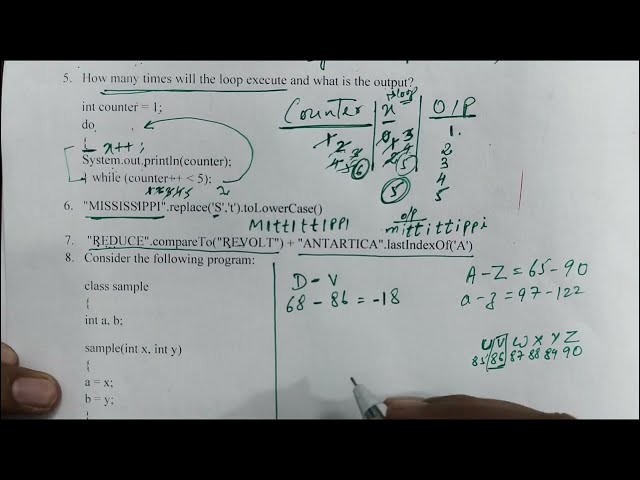 5. How many times will the loop execute and what is the output?
int counter = 1;
do
{ x++;
System.out.println(counter);
} while (counter++ < 5);
Counter x O/P
loop
1 0 3 1.
2 2
3 3
4 5 6 5 4
5 5
6. "MISSISSIPPI".replace('S','t').toLowerCase()
MIttIttIPPI
o/p
mittittippi
7. "REDUCE".compareTo("REVOLT") + "ANTARTICA".lastIndexOf('A')
8. Consider the following program:
class sample
{
int a, b;
sample(int x, int y)
{
a = x;
b = y;
D - V
68 - 86 = -18
A - Z = 65 - 90
a - z = 97 - 122
U V W X Y Z
85 86 87 88 89 90